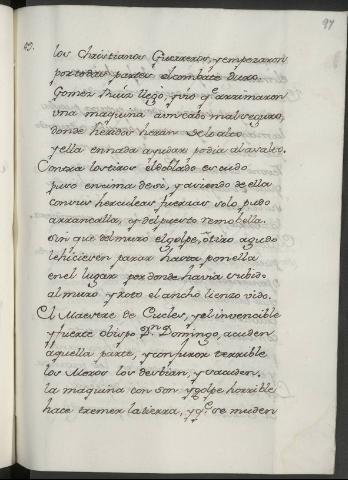 97
los Christianos Guerreros, y empezaron
por todas partes el combate duro.
Gomez Ruiz llegó, y vió q.e arrimaron
una maquina a un cabo mal seguro,
donde heridos heran de lo alto
y ella en nada ayudar podia al avalto.
Contra los tiros el doblado escudo
puso encima de si, y asiendo de ella
con sus herculeas fuerzas solo pudo
arrancalla, y del puesto removella.
sin que del muro el golpe, ó tiro agudo
le hiciesen parar hasta ponella
en el lugar por donde havia subido
al muro, y roto el ancho lienzo vido.
El Maestre de Ucles, y el invencible
y fuerte obispo D.n Domingo, acuden
aquella parte, y con furor terrible
los Moros los desbian, y sacuden.
la maquina con son y golpe horrible
hace tremer la tierra, y q.e se muden